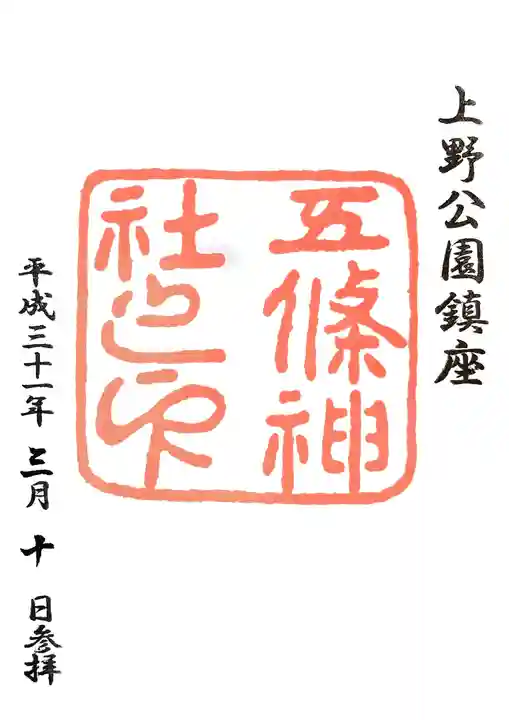 上野公園鎮座
五條神
社之印
平成三十一年 三月 十 日参拝